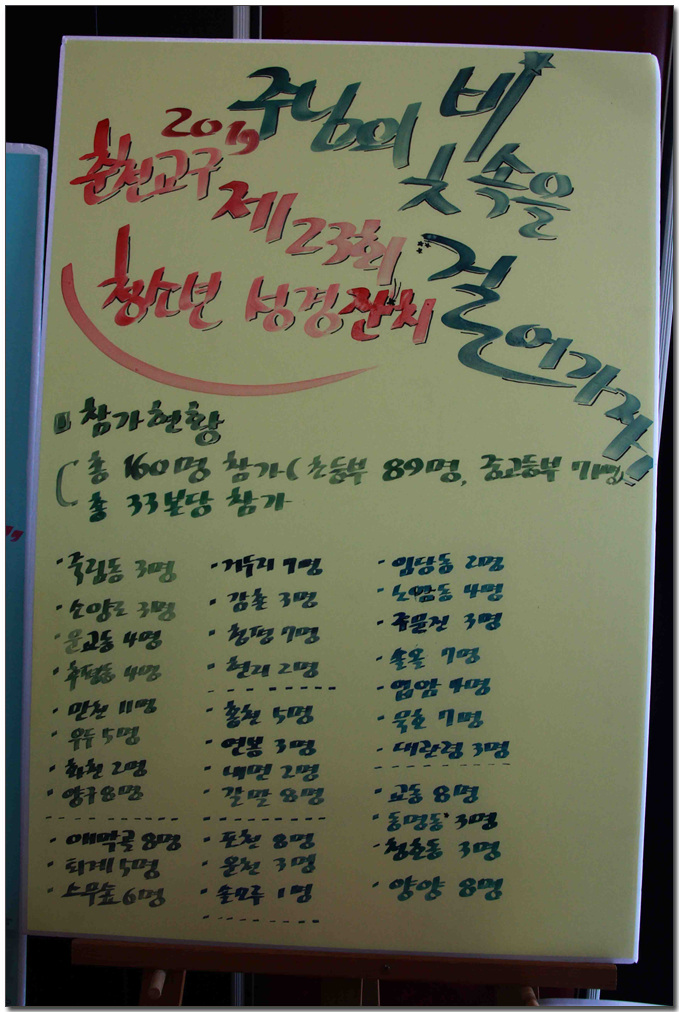 2019
춘천교구
제23회
청소년 성경잔치
주님의 빛 속을
걸어가자!
참가현황
총 160명 참가(초등부 89명, 중고등부 71명)
총 33본당 참가
· 죽림동 3명
· 소양로 3명
· 운교동 4명
· 후평동 4명
· 만천 11명
· 우두 5명
· 화천 2명
· 양구 8명
· 애막골 8명
· 퇴계 5명
· 스무숲 6명
· 거두리 7명
· 강촌 3명
· 청평 7명
· 현리 2명
· 홍천 5명
· 연봉 3명
· 내면 2명
· 갈말 8명
· 포천 8명
· 운천 3명
· 솔모루 1명
· 임당동 2명
· 노암동 4명
· 주문진 3명
· 솔올 7명
· 입암 4명
· 묵호 7명
· 대관령 3명
· 교동 8명
· 동명동 3명
· 청호동 3명
· 양양 8명